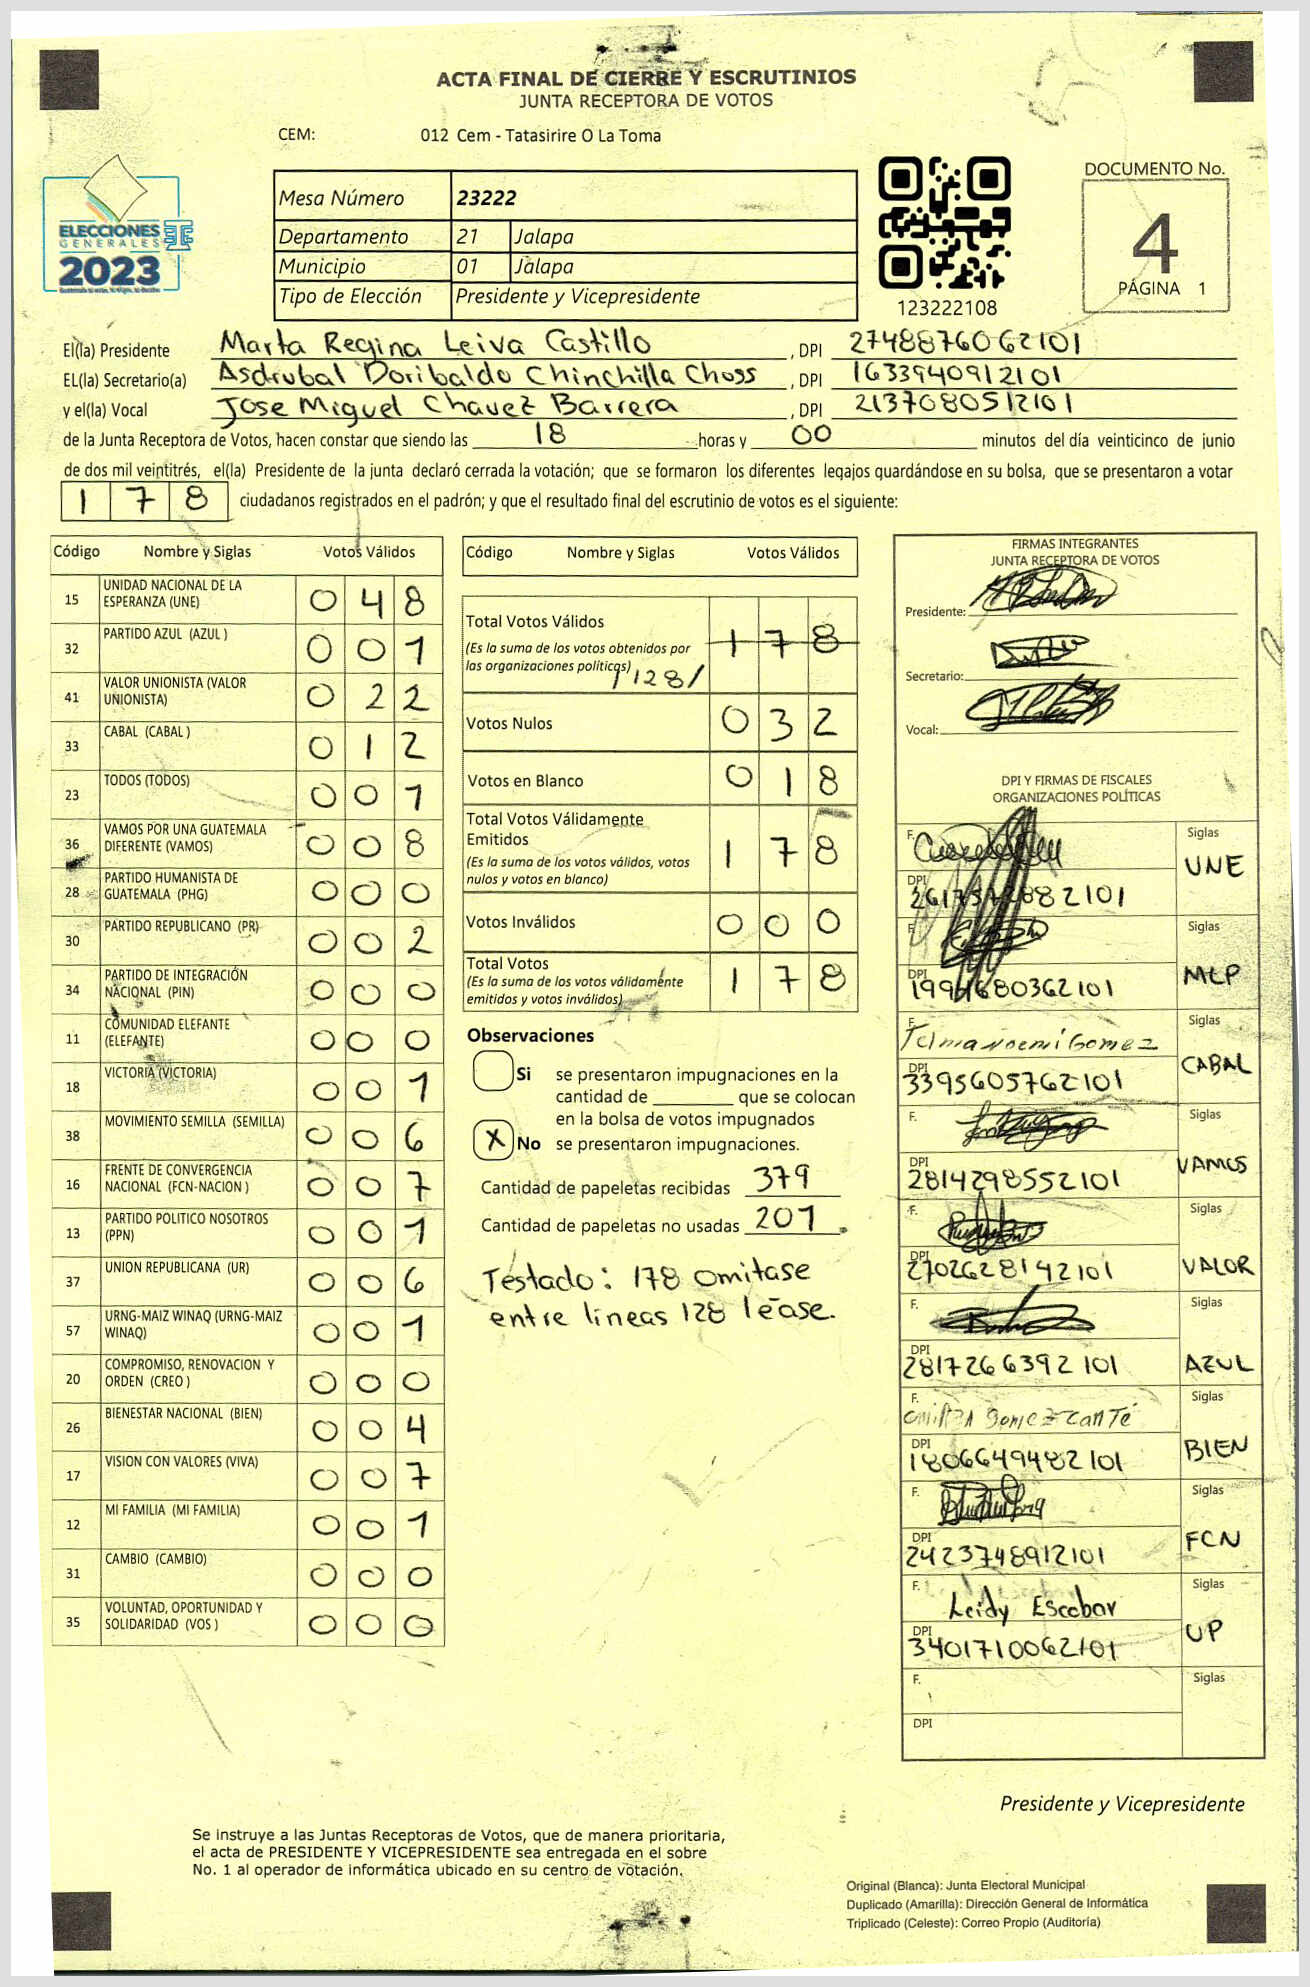 ACTA FINAL DE CIERRE Y ESCRUTINIOS
JUNTA RECEPTORA DE VOTOS
CEM: 012 Cem - Tatasirire O La Toma
ELECCIONES
GENERALES
2023
Mesa Número 23222
Departamento 21 Jalapa
Municipio 01 Jalapa
Tipo de Elección Presidente y Vicepresidente
123222108
DOCUMENTO No.
4
PÁGINA 1
El(la) Presidente Marta Regina Leiva Castillo , DPI 2748876062101
EL(la) Secretario(a) Asdrubal Doribaldo Chinchilla Choss , DPI 1633940912101
y el(la) Vocal Jose Miguel Chavez Barrera , DPI 2137080512101
de la Junta Receptora de Votos, hacen constar que siendo las 18 horas y 00 minutos del día veinticinco de junio
de dos mil veintitrés, el(la) Presidente de la junta declaró cerrada la votación; que se formaron los diferentes legajos guardándose en su bolsa, que se presentaron a votar
1 7 8 ciudadanos registrados en el padrón; y que el resultado final del escrutinio de votos es el siguiente:
Código Nombre y Siglas Votos Válidos
15 UNIDAD NACIONAL DE LA ESPERANZA (UNE) 0 4 8
32 PARTIDO AZUL (AZUL ) 0 0 1
41 VALOR UNIONISTA (VALOR UNIONISTA) 0 2 2
33 CABAL (CABAL ) 0 1 2
23 TODOS (TODOS) 0 0 1
36 VAMOS POR UNA GUATEMALA DIFERENTE (VAMOS) 0 0 8
28 PARTIDO HUMANISTA DE GUATEMALA (PHG) 0 0 0
30 PARTIDO REPUBLICANO (PR) 0 0 2
34 PARTIDO DE INTEGRACIÓN NACIONAL (PIN) 0 0 0
11 COMUNIDAD ELEFANTE (ELEFANTE) 0 0 0
18 VICTORIA (VICTORIA) 0 0 1
38 MOVIMIENTO SEMILLA (SEMILLA) 0 0 6
16 FRENTE DE CONVERGENCIA NACIONAL (FCN-NACION ) 0 0 7
13 PARTIDO POLITICO NOSOTROS (PPN) 0 0 1
37 UNION REPUBLICANA (UR) 0 0 6
57 URNG-MAIZ WINAQ (URNG-MAIZ WINAQ) 0 0 1
20 COMPROMISO, RENOVACION Y ORDEN (CREO ) 0 0 0
26 BIENESTAR NACIONAL (BIEN) 0 0 4
17 VISION CON VALORES (VIVA) 0 0 7
12 MI FAMILIA (MI FAMILIA) 0 0 1
31 CAMBIO (CAMBIO) 0 0 0
35 VOLUNTAD, OPORTUNIDAD Y SOLIDARIDAD (VOS ) 0 0 0
Código Nombre y Siglas Votos Válidos
Total Votos Válidos 1 7 8
(Es la suma de los votos obtenidos por
las organizaciones políticas) /128/
Votos Nulos 0 3 2
Votos en Blanco 0 1 8
Total Votos Válidamente
Emitidos 1 7 8
(Es la suma de los votos válidos, votos
nulos y votos en blanco)
Votos Inválidos 0 0 0
Total Votos 1 7 8
(Es la suma de los votos válidamente
emitidos y votos inválidos)
Observaciones
Si se presentaron impugnaciones en la
cantidad de ________ que se colocan
en la bolsa de votos impugnados
X No se presentaron impugnaciones.
Cantidad de papeletas recibidas 379
Cantidad de papeletas no usadas 201.
Testado: 178 omitase
entre lineas 128 léase.
FIRMAS INTEGRANTES
JUNTA RECEPTORA DE VOTOS
Presidente:
Secretario:
Vocal:
DPI Y FIRMAS DE FISCALES
ORGANIZACIONES POLÍTICAS
F. Siglas
UNE
DPI
F. Siglas
MLP
DPI 1994680362101
F. Telma Noemi Gomez Siglas
CABAL
DPI 3395605762101
F. Siglas
VAMOS
DPI 2814298552101
F. Siglas
VALOR
DPI 2702628142101
F. Siglas
AZUL
DPI 2817266392101
F. Gomez Canté Siglas
BIEN
DPI 1806649482101
F. Siglas
FCN
DPI 2423748912101
F. Leidy Escobar Siglas
UP
DPI 3401710062101
F. Siglas
DPI
Presidente y Vicepresidente
Se instruye a las Juntas Receptoras de Votos, que de manera prioritaria,
el acta de PRESIDENTE Y VICEPRESIDENTE sea entregada en el sobre
No. 1 al operador de informática ubicado en su centro de votación.
Original (Blanca): Junta Electoral Municipal
Duplicado (Amarilla): Dirección General de Informática
Triplicado (Celeste): Correo Propio (Auditoría)